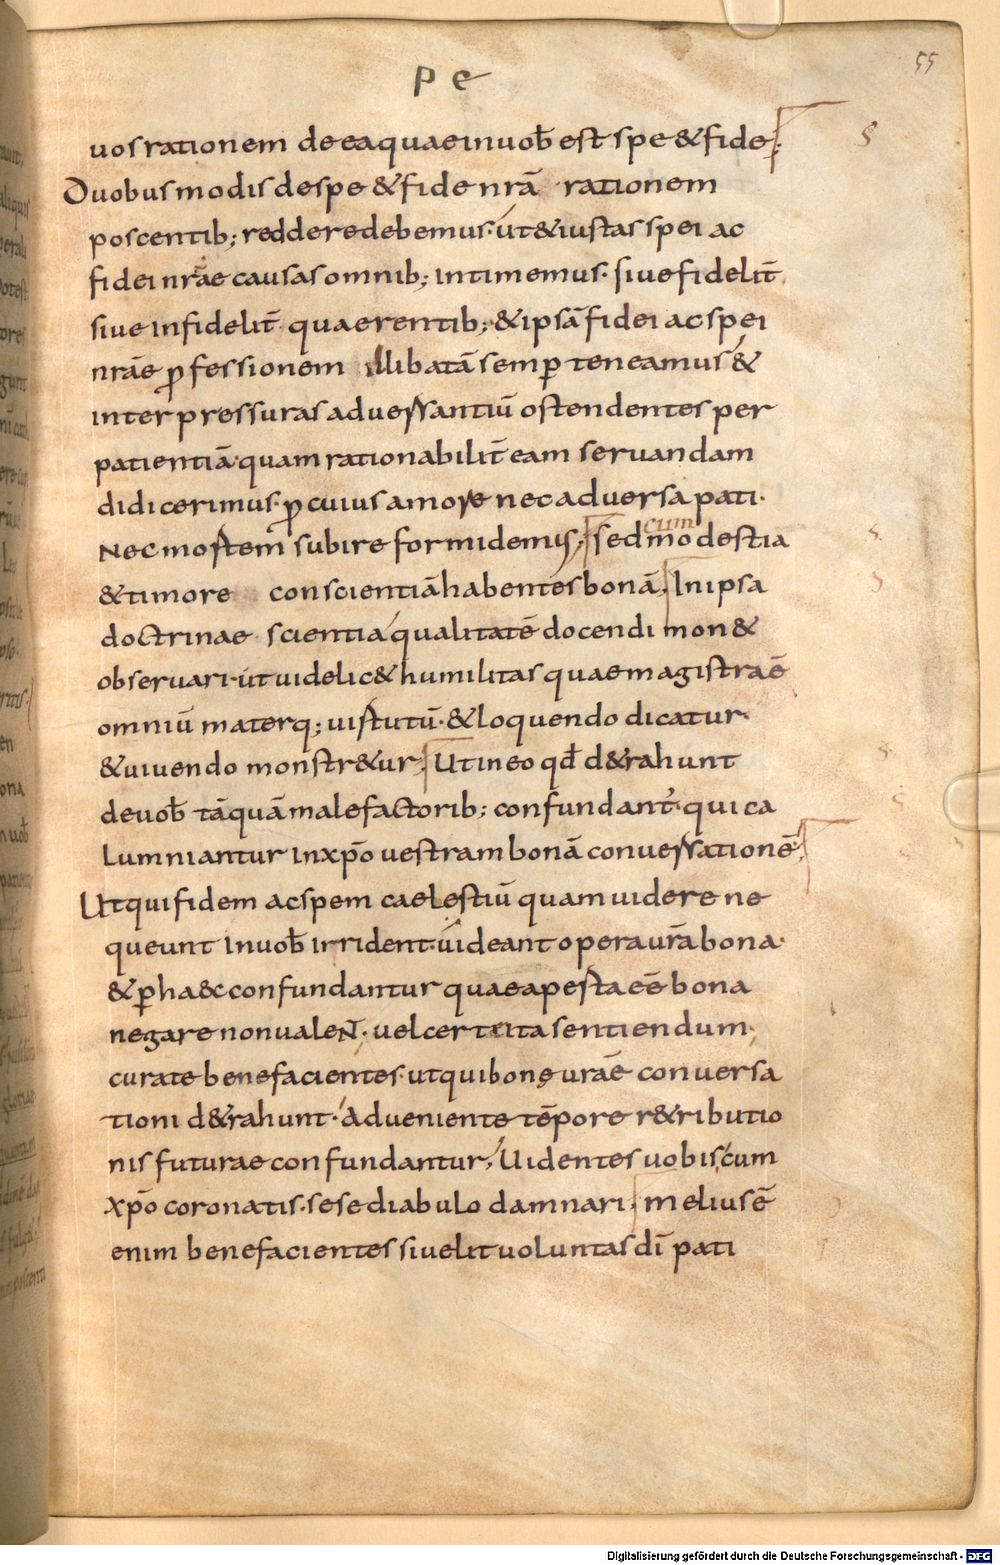 55
PE
uos rationem de ea quae in uob̄ est spe & fide;
Duobus modis de spe & fide nr̄a rationem
poscentib; reddere debemus· ut & iustas spei ac
fidei nr̄ae causas omnib; intimemus· siue fidelit̄
siue infidelit̄ quaerentib; & ipsā fidei ac spei
nr̄ae ꝓfessionem illibatā semꝑ teneamus &
inter pressuras aduersantiū ostendentes per
patientiā· quam rationabilit̄ eam seruandam
didicerimus· ꝓ cuius amore nec aduersa pati·
Nec mortem subire formidemus; sed cum modestia
& timore conscientiā habentes bonā; In ipsa
doctrinae scientia qualitatē docendi mon&
obseruari· ut uidelic& humilitas quae magistra ē
omniū materq; uirtutū· & loquendo dicatur·
& uiuendo monstr&ur; Ut in eo qđ d&rahunt
de uob̄ tāquā malefactorib; confundant̄· qui ca
lumniantur in xp̄o uestram bonā conuersationē;
Ut qui fidem ac spem caelestiū quam uidere ne
queunt in uob̄ irrident· uideant opera ur̄a bona·
& ꝑ haec confundantur quae aperta eē bona
negare non ualent· uel certe ita sentiendum·
curate benefacientes· ut qui bonę ur̄ae conuersa
tioni d&rahunt· Adueniente tēpore r&ributio
nis futurae confundantur; Uidentes uobiscum
xp̄o coronatis· sese diabulo damnari; melius ē
enim benefacientes si uelit uoluntas dī pati
Digitalisierung gefördert durch die Deutsche Forschungsgemeinschaft - DFG